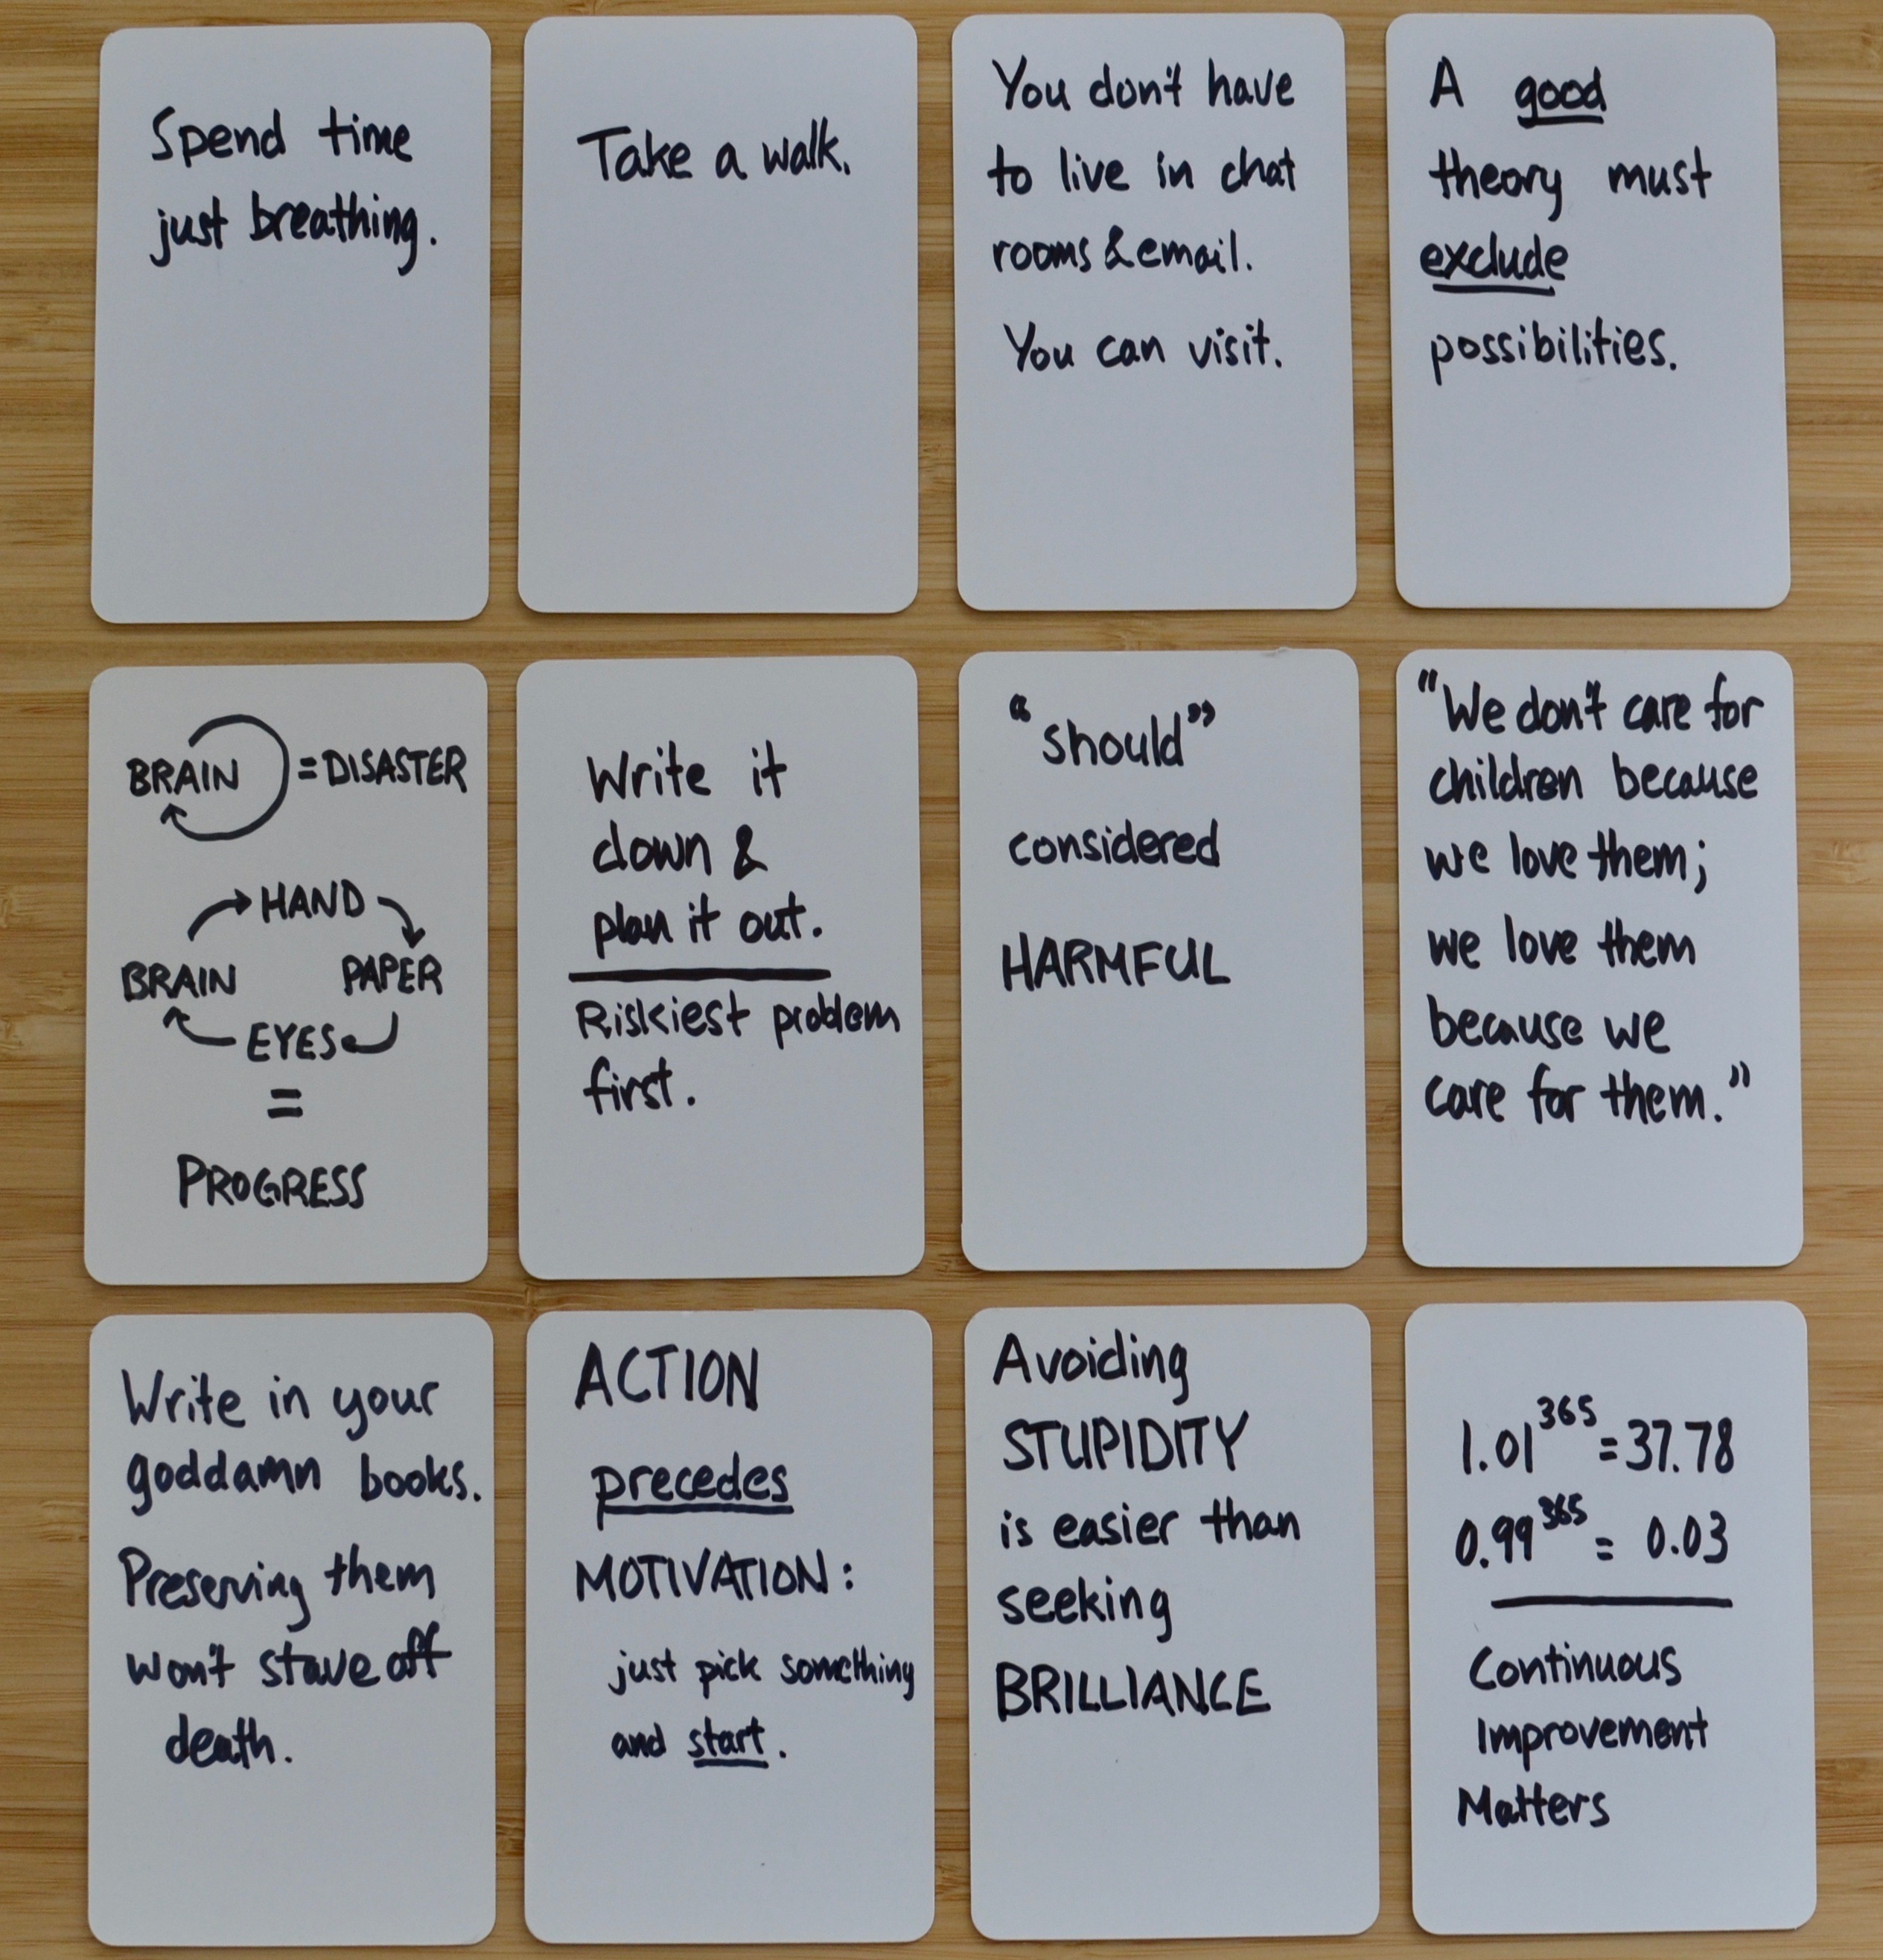 Spend time
just breathing.
Take a walk.
You don't have
to live in chat
rooms & email.
You can visit.
A good
theory must
exclude
possibilities.
BRAIN = DISASTER
HAND
BRAIN PAPER
EYES
=
PROGRESS
Write it
down &
plan it out.
Riskiest problem
first.
"should"
considered
HARMFUL
"We don't care for
children because
we love them;
we love them
because we
care for them."
Write in your
goddamn books.
Preserving them
won't stave off
death.
ACTION
precedes
MOTIVATION:
just pick something
and start.
Avoiding
STUPIDITY
is easier than
seeking
BRILLIANCE
1.01³⁶⁵ = 37.78
0.99³⁶⁵ = 0.03
Continuous
Improvement
Matters